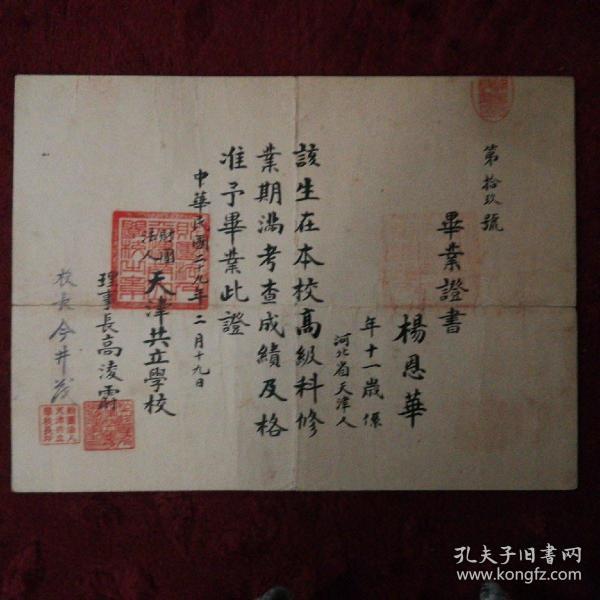 第拾玖號
畢業證書
楊恩華
年十一歲係
河北省天津人
該生在本校高級科修
業期滿考查成績及格
准予畢業此證
中華民國二十九年二月十九日
財團法人天津共立學校
理事長高凌霨
校長今井
財團法人
天津共立
學校長印
孔夫子旧书网
www.kongfz.com